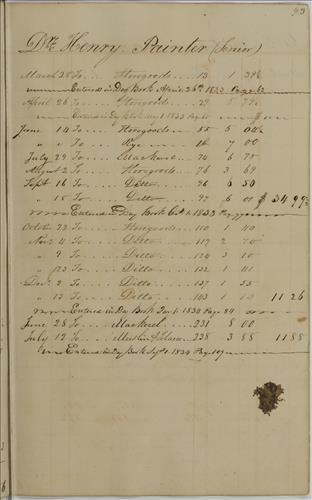 93
Dr. Henry Painter (Senior)
March 28 To Storegoods 13 1 39½
Entered in Day Book April 26th 1833 Page 62
April 26 To Storegoods 29 5 79½
Entered in Day Book 1833
June 14 To Storegoods 55 5 04½
" " To Rye 16 7 00
July 29 To Mackerel 74 6 75
August 2 To Storegoods 76 3 69
Sept 16 To Ditto 96 6 50
" 18 To Ditto 97 $ 34 99½
Entered in Day Book Oct 1833
October 22 To Storegoods 110 1 40
Nov 4 To Ditto 117 2 70
" 9 To Ditto 124 3 10
" 23 To Ditto 132 1 41
Dec 2 To Ditto 137 1 55
" 13 To Ditto 103 1 10 11 26
Entered in Day Book Jan 1 1834 Page 84
June 28 To Mackerel 231 8 00
July 12 To Muslin & 238 3 88 11 88
Entered in Day Book Sept 1 1834 Page 107